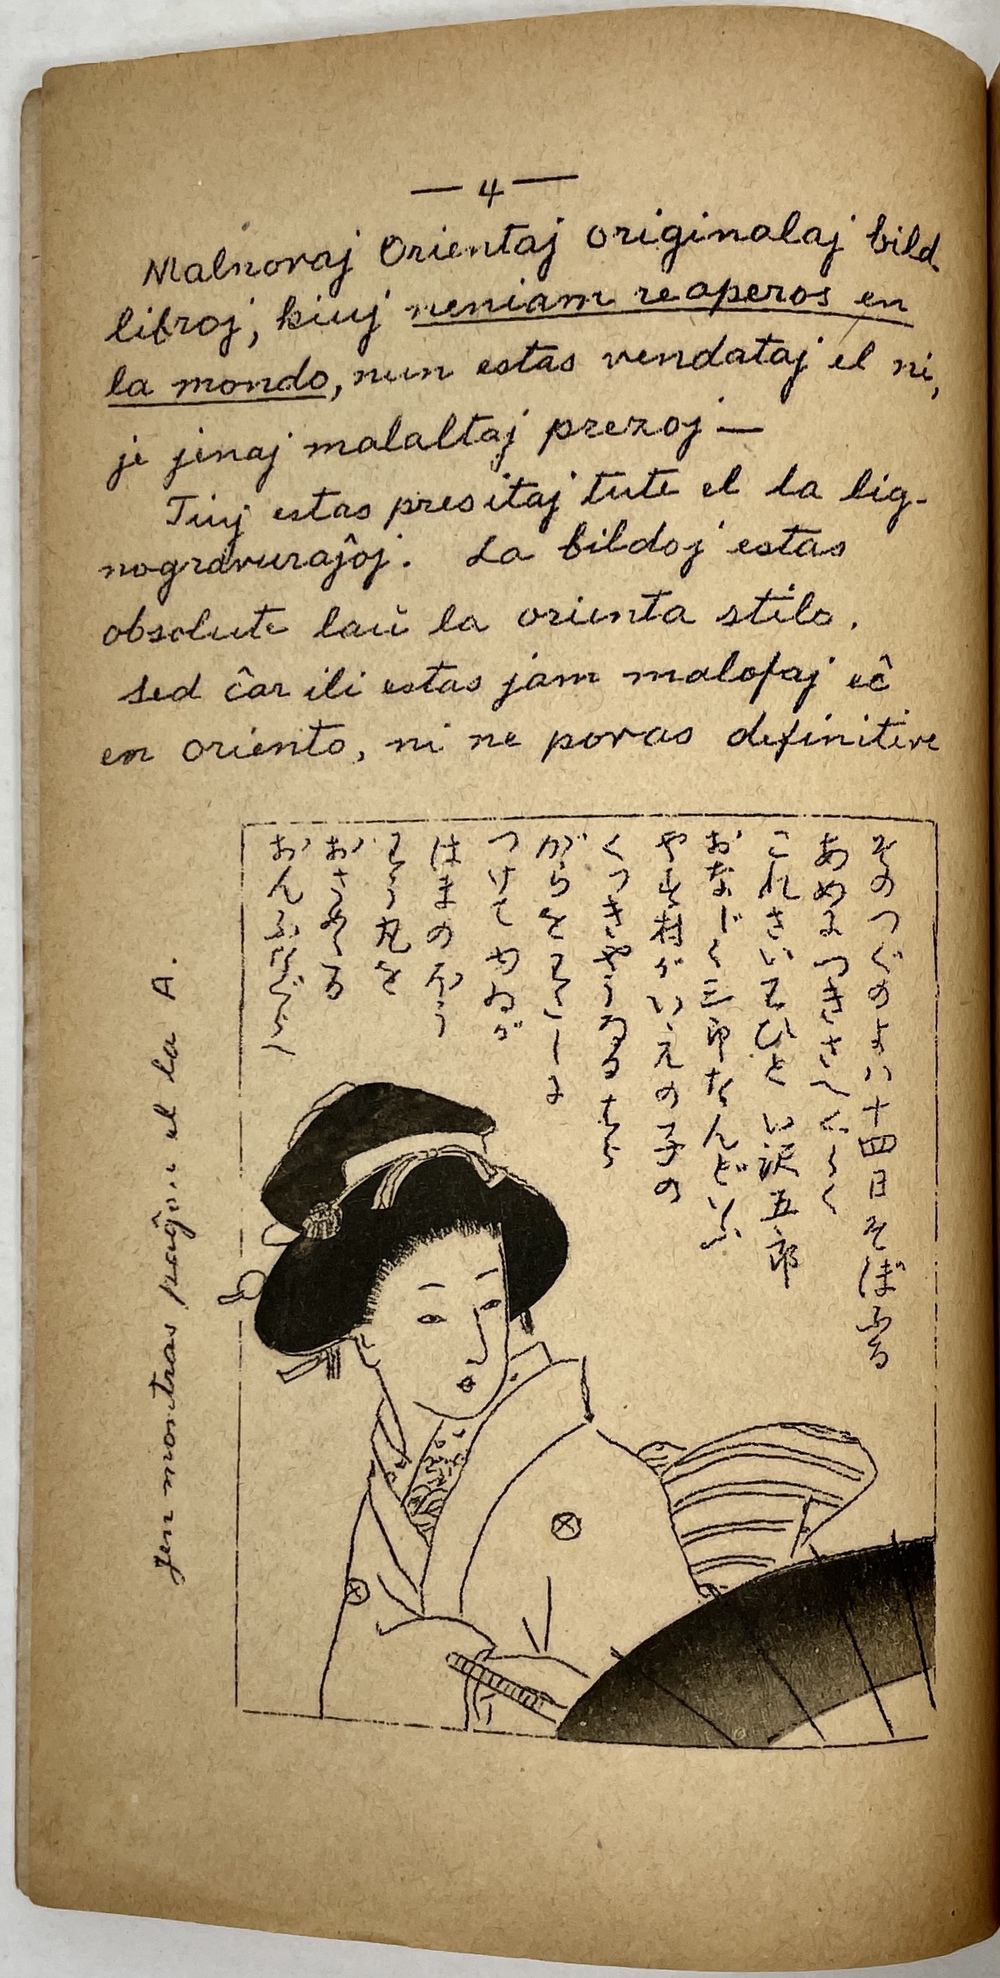 — 4 —
Malnovaj Orientaj originalaj bild-
libroj, kiuj neniam reaperos en
la mondo, nun estas vendataj el ni,
je jenaj malaltaj prezoj —
Tiuj estas presitaj tute el la lig-
nogravuraĵoj. La bildoj estas
absolute laŭ la orienta stilo.
Sed ĉar ili estas jam malofaj eĉ
en oriento, ni ne povas definitive
そのつぐのよハ十四日そぼふる
あめにつきさへくらく
これさいわひと い沢五郎
おなじく三郎なんどいふ
やす村がいえの子の
くつきやうなるはら
がらをわたしに
つけてゆゐが
はまの不う
わう丸を
おさめる
おんふねぐらへ
Jen montras paĝon el la A.